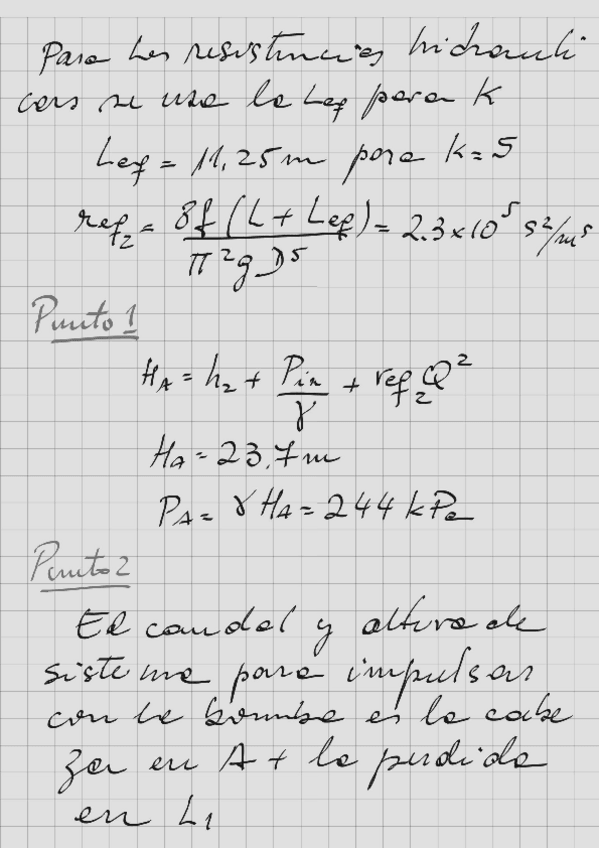 Para las resistencias hidrauli
cas se usa la Leq para K
Leq = 11,25 m para k = 5
ref₂ = 8f (L + Leq) / π² g D⁵ = 2.3 × 10⁵ s²/m⁵
Punto 1
H_A = h₂ + P_in / γ + ref₂ Q²
H_A = 23.7 m
P_A = γ H_A = 244 kPa
Punto 2
El caudal y altura de
sistema para impulsar
con la bomba es la cabe
za en A + la perdida
en L₁